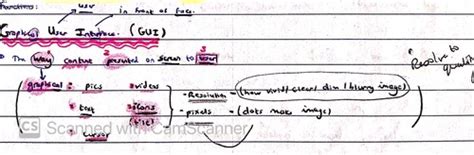 Functions: user in front of face.
Graphical User Interface. (GUI)
The way content presented on screen to user
graphical: pics videos - Resolution - (how vivid/clear/dim/blurry image)
text icons - pixels - (dots make image)
cursor
Resolve to
CS Scanned with CamScanner